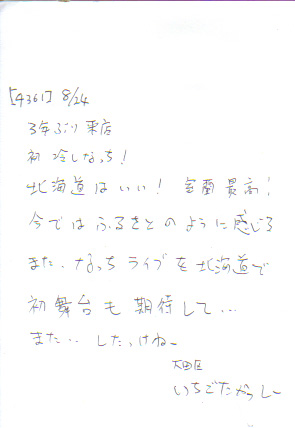 [4361] 8/24
3年ぶり来店
初 冷しなっち!
北海道はいい! 室蘭最高!
今ではふるさとのように感じる
また、なっちライブを北海道で
初舞台も期待して…
また‥ したっけねー
大田区
いちごだからしー